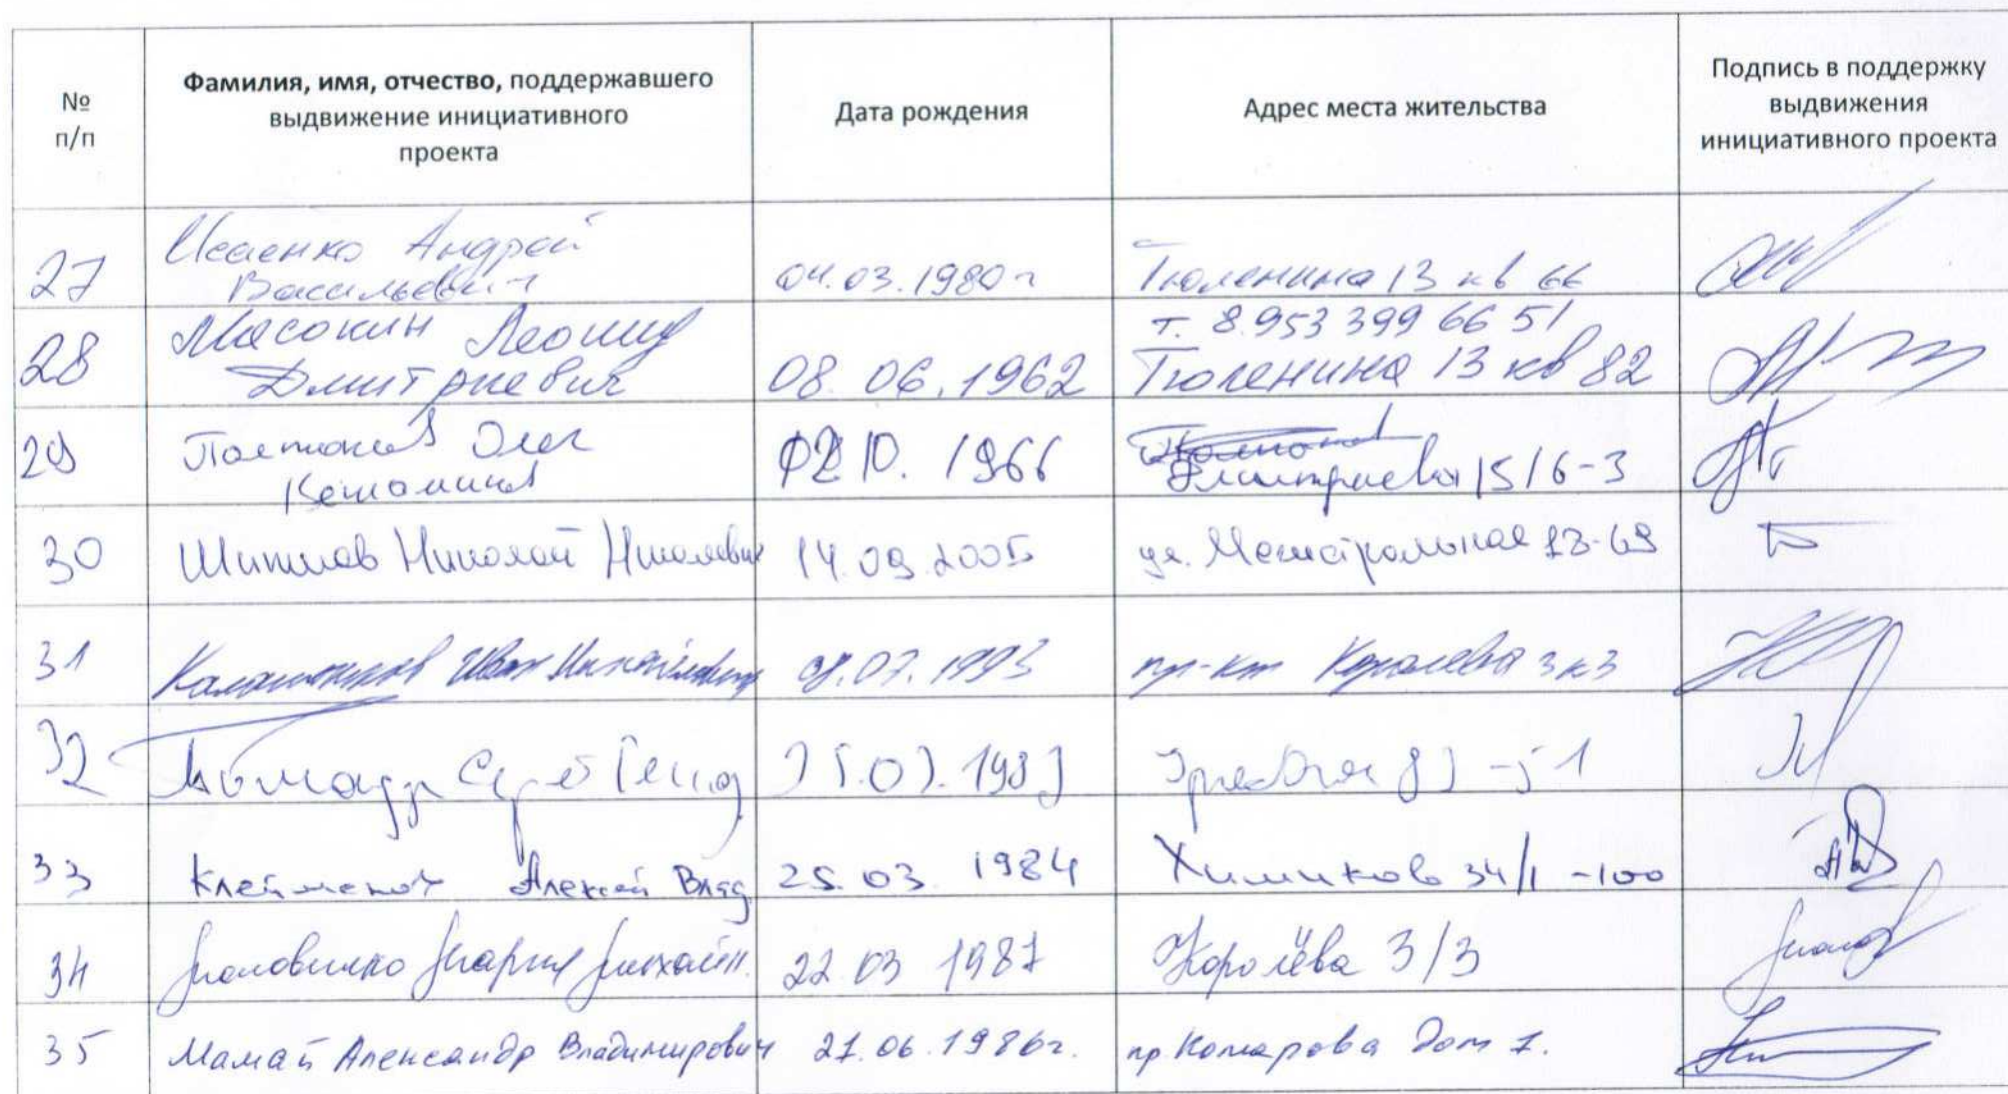 №
п/п
Фамилия, имя, отчество, поддержавшего
выдвижение инициативного
проекта
Дата рождения
Адрес места жительства
Подпись в поддержку
выдвижения
инициативного проекта
27
Исаенко Андрей
Васильевич
04.03.1980г
Тюленина 13 кв 66
28
Масокин Леонид
Дмитриевич
08.06.1962
т. 8.953 399 66 51
Тюленина 13 кв 82
29
Олег
10. 1966
Дмитриева 15/6-3
30
Николай Николаевич
14.09.2005
ул. Магистральная 13-69
31
Иван
07.1993
пр-кт Королева 3к3
32
33
Клейменов Алексей Влад
25.03.1984
Химиков 34/1-100
34
Мария Михайл.
22.03 1987
Королёва 3/3
35
Мамай Александр Владимирович
21.06.1986г.
пр Комарова дом 1.